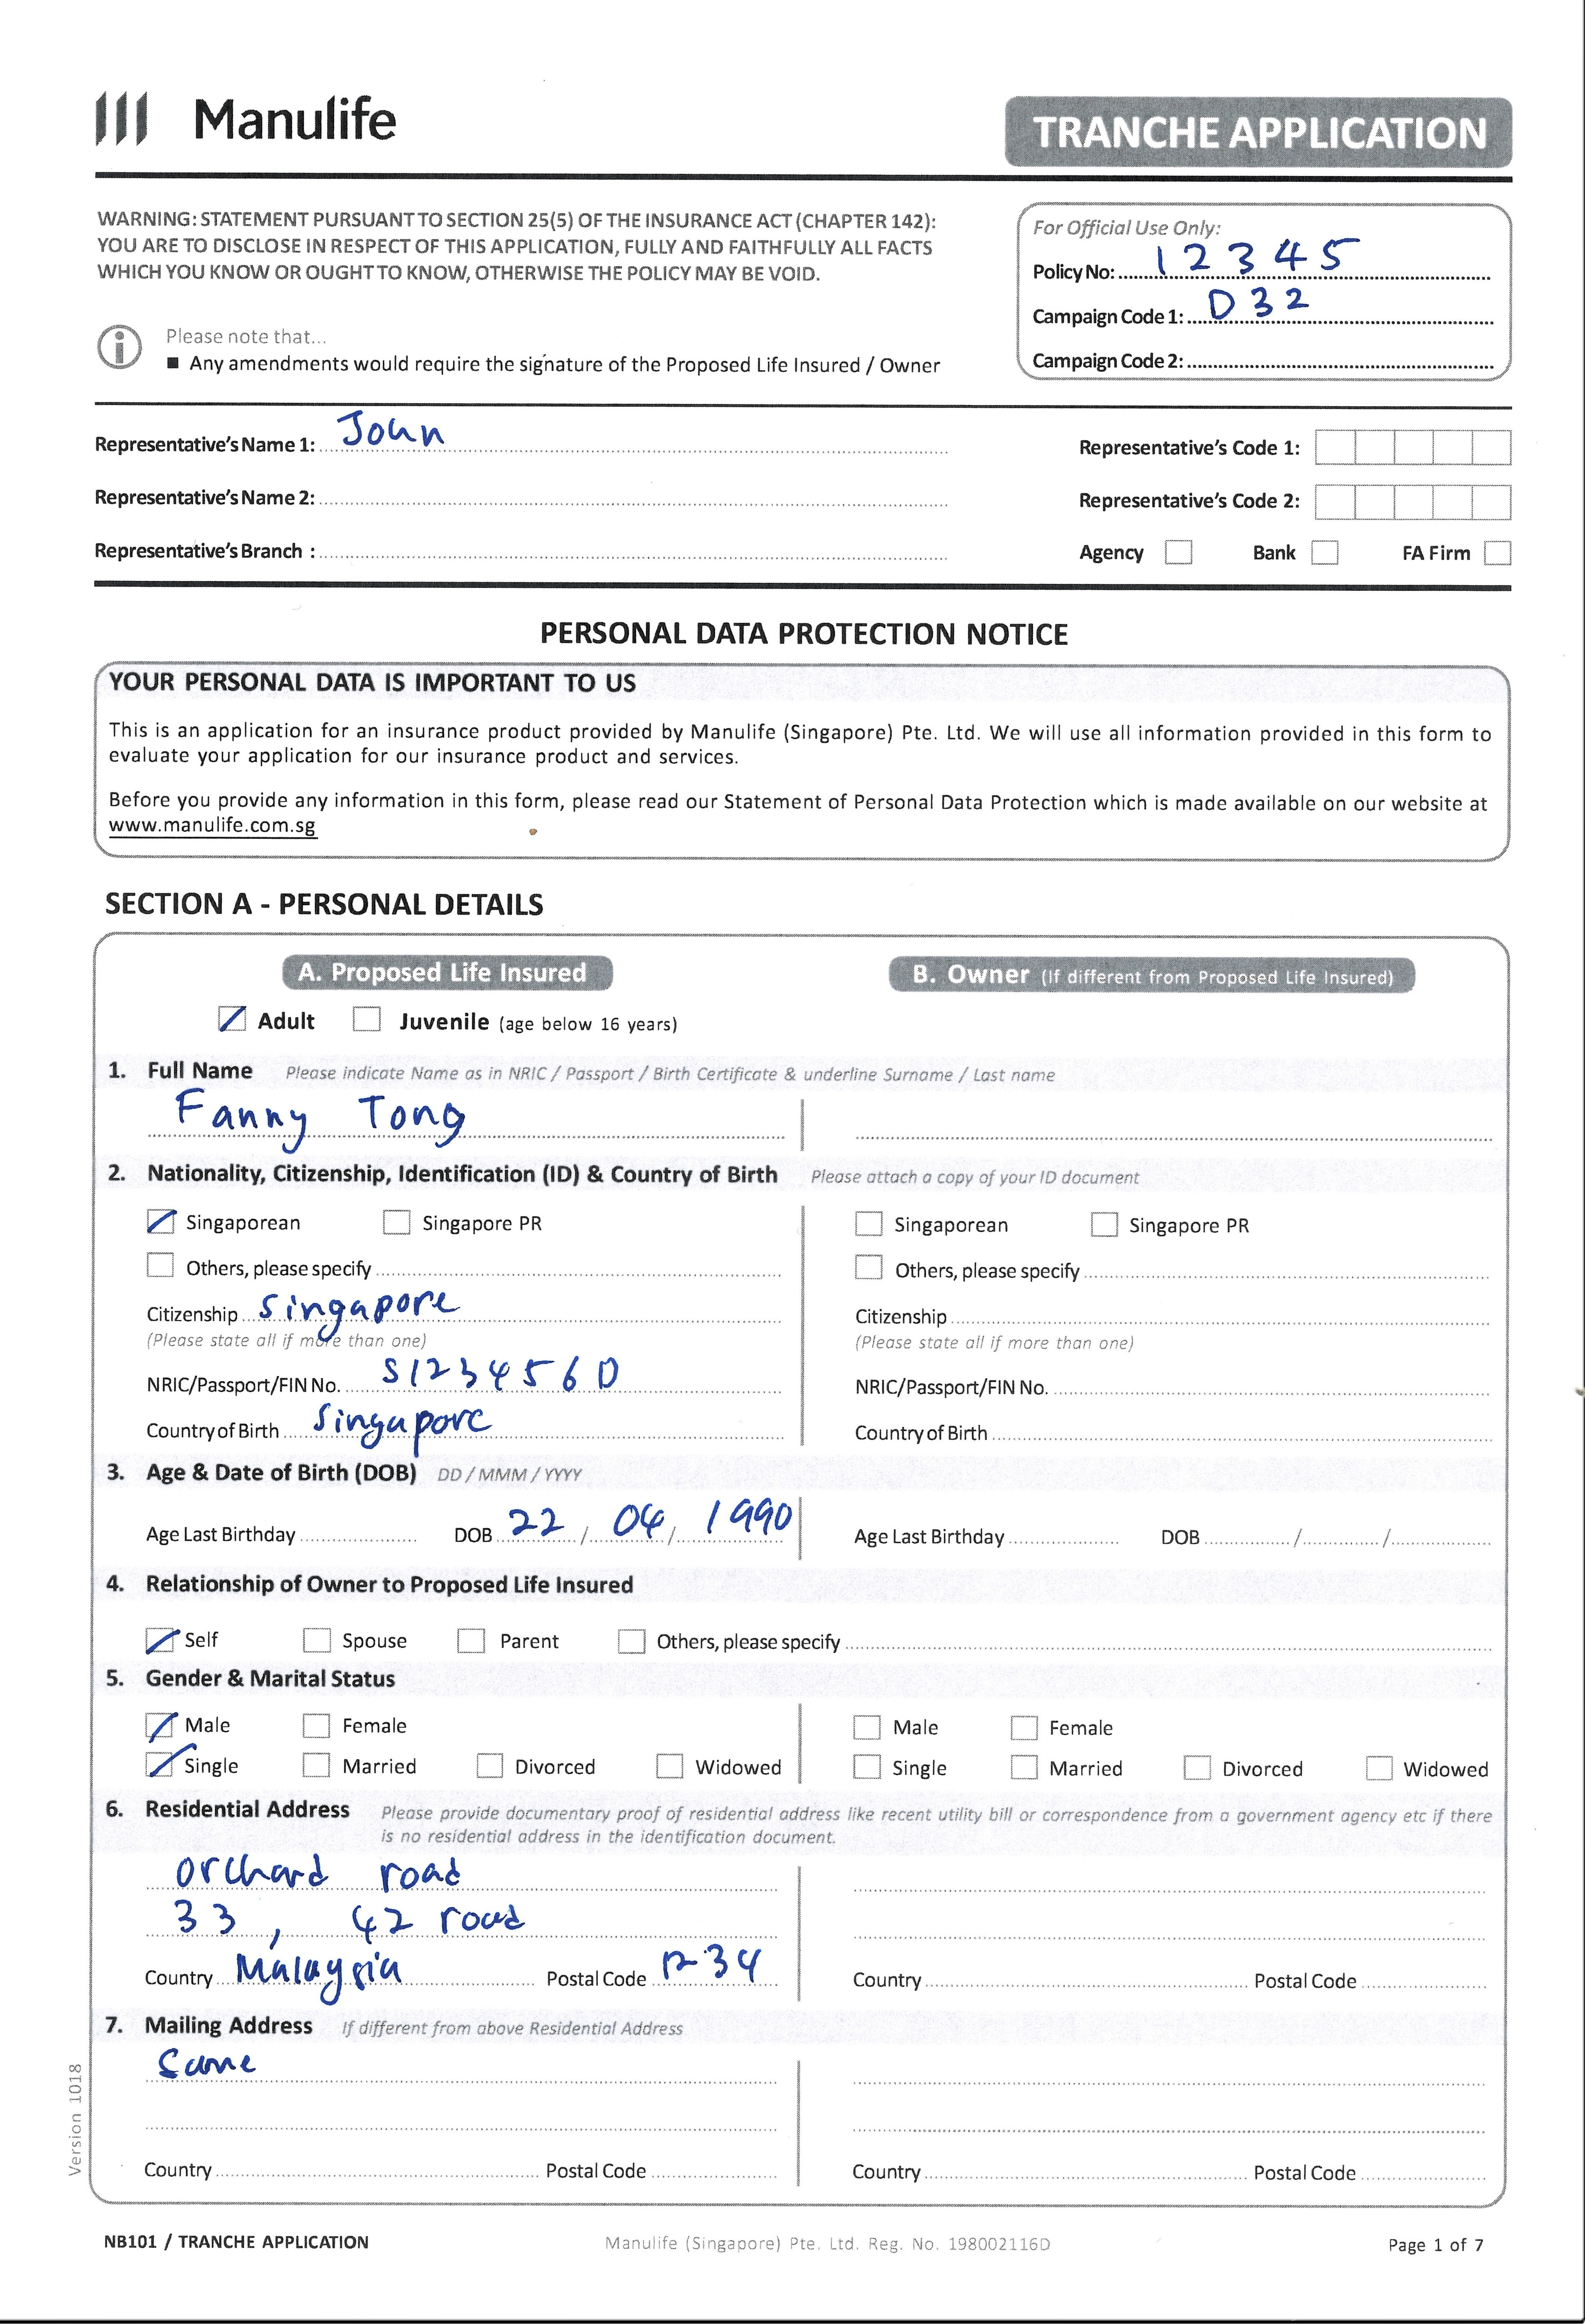 Manulife
TRANCHE APPLICATION
WARNING: STATEMENT PURSUANT TO SECTION 25(5) OF THE INSURANCE ACT (CHAPTER 142):
YOU ARE TO DISCLOSE IN RESPECT OF THIS APPLICATION, FULLY AND FAITHFULLY ALL FACTS
WHICH YOU KNOW OR OUGHT TO KNOW, OTHERWISE THE POLICY MAY BE VOID.
For Official Use Only:
Policy No: 12345
Campaign Code 1: D32
Campaign Code 2:
Please note that...
■ Any amendments would require the signature of the Proposed Life Insured / Owner
Representative's Name 1: John Representative's Code 1:
Representative's Name 2: Representative's Code 2:
Representative's Branch : Agency Bank FA Firm
PERSONAL DATA PROTECTION NOTICE
YOUR PERSONAL DATA IS IMPORTANT TO US
This is an application for an insurance product provided by Manulife (Singapore) Pte. Ltd. We will use all information provided in this form to
evaluate your application for our insurance product and services.
Before you provide any information in this form, please read our Statement of Personal Data Protection which is made available on our website at
www.manulife.com.sg
SECTION A - PERSONAL DETAILS
A. Proposed Life Insured B. Owner (If different from Proposed Life Insured)
Adult Juvenile (age below 16 years)
1. Full Name Please indicate Name as in NRIC / Passport / Birth Certificate & underline Surname / Last name
Fanny Tong
2. Nationality, Citizenship, Identification (ID) & Country of Birth Please attach a copy of your ID document
Singaporean Singapore PR Singaporean Singapore PR
Others, please specify Others, please specify
Citizenship Singapore Citizenship
(Please state all if more than one) (Please state all if more than one)
NRIC/Passport/FIN No. S123456D NRIC/Passport/FIN No.
Country of Birth Singapore Country of Birth
3. Age & Date of Birth (DOB) DD / MMM / YYYY
Age Last Birthday DOB 22 / 04 / 1990 Age Last Birthday DOB / /
4. Relationship of Owner to Proposed Life Insured
Self Spouse Parent Others, please specify
5. Gender & Marital Status
Male Female Male Female
Single Married Divorced Widowed Single Married Divorced Widowed
6. Residential Address Please provide documentary proof of residential address like recent utility bill or correspondence from a government agency etc if there
is no residential address in the identification document.
orchard road
33, 42 road
Country Malaysia Postal Code 1234 Country Postal Code
7. Mailing Address If different from above Residential Address
Same
Country Postal Code Country Postal Code
Version 1018
NB101 / TRANCHE APPLICATION Manulife (Singapore) Pte. Ltd. Reg. No. 198002116D Page 1 of 7